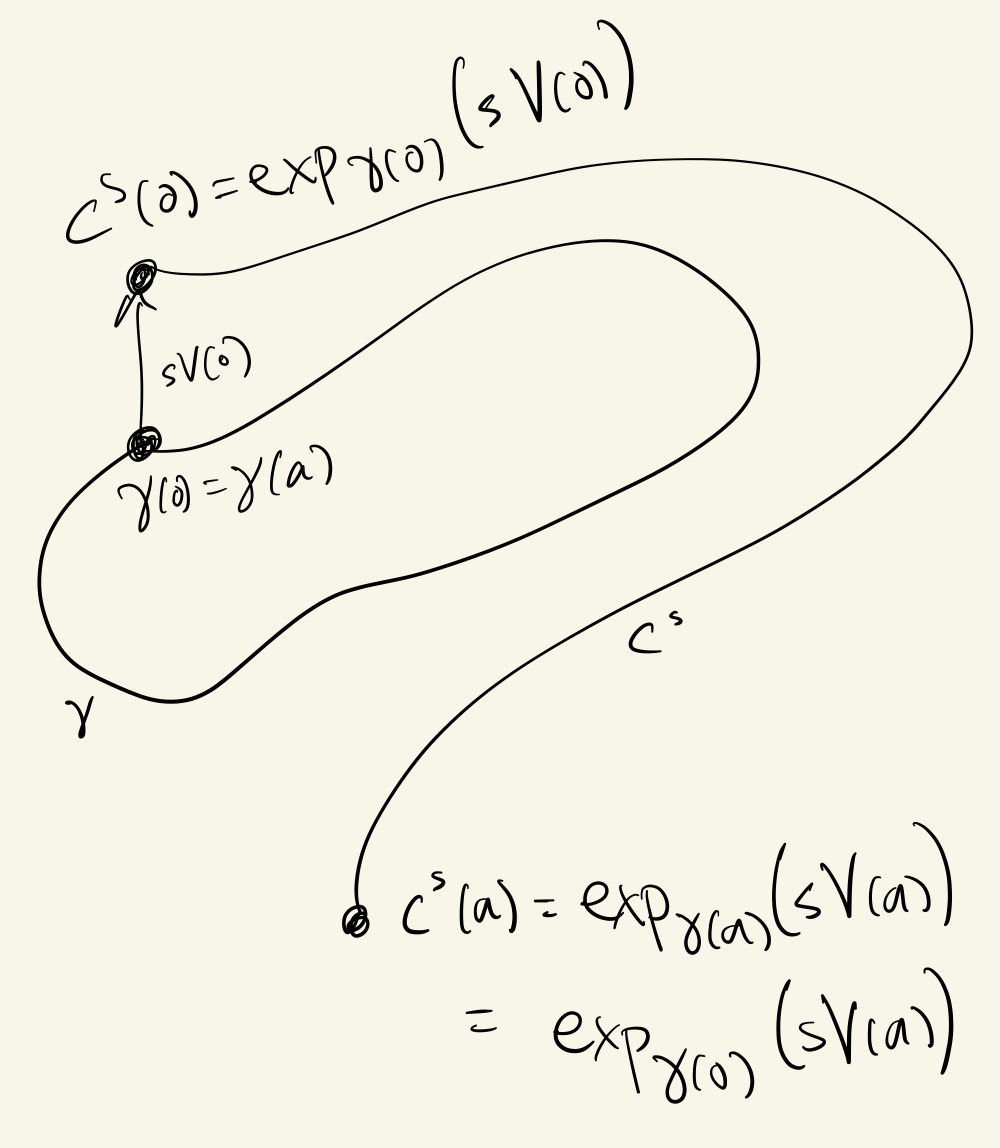 c^s(0) = exp_γ(0) (sV(0))
sV(0)
γ(0) = γ(a)
c^s
γ
c^s(a) = exp_γ(a) (sV(a))
= exp_γ(0) (sV(a))